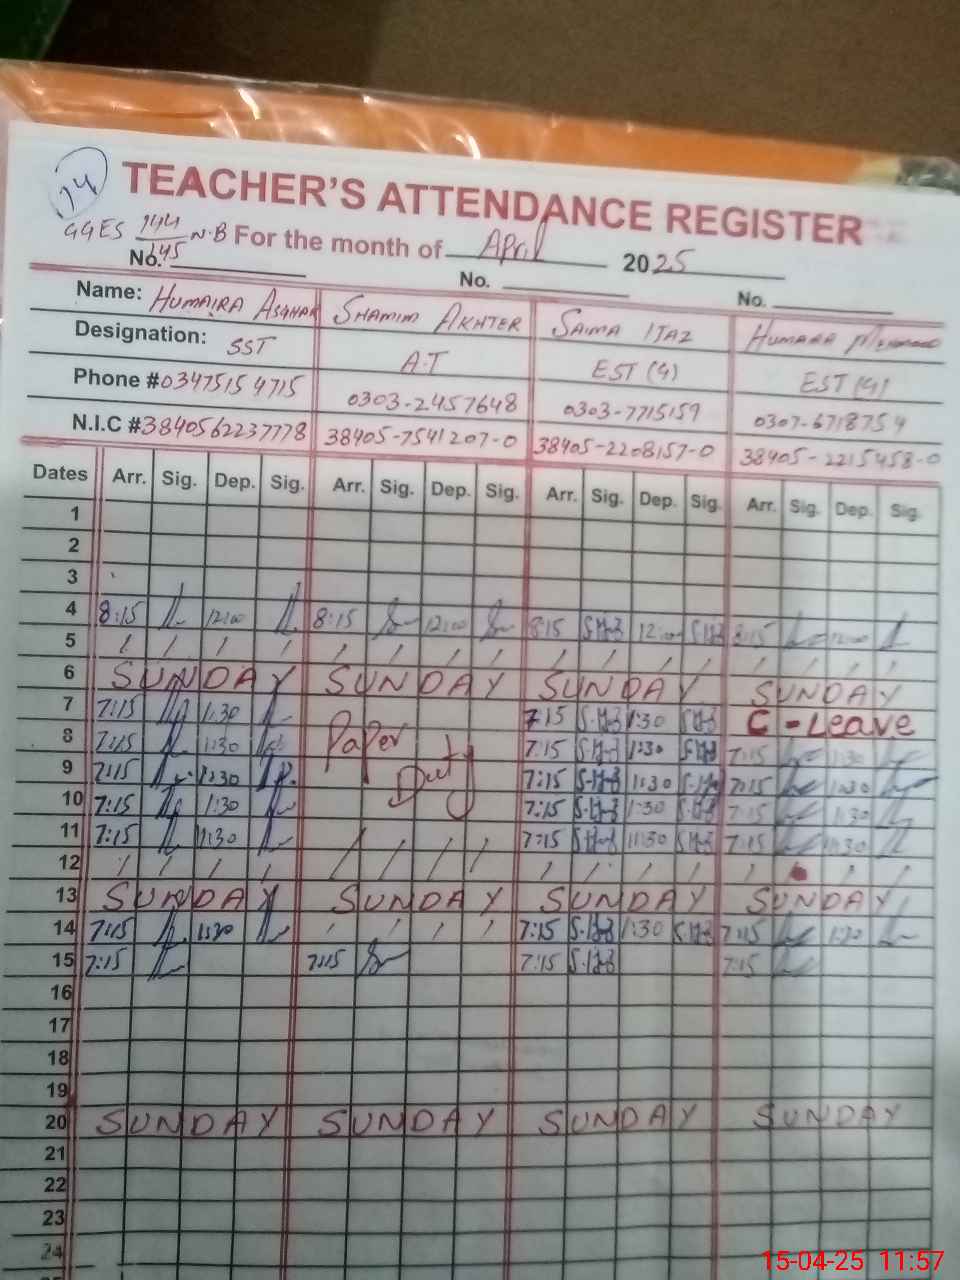 14
TEACHER'S ATTENDANCE REGISTER
GGES 144/145 N.B For the month of April 2025
No. No. No.
Name: HUMAIRA ASGHAR SHAMIM AKHTER SAIMA IJAZ HUMARA
Designation: SST A.T EST (G) EST (G)
Phone #03475154715 0303-2457648 0303-7715159 0307-6718754
N.I.C #3840562237778 38405-7541207-0 38405-2208157-0 38405-2215458-0
Dates Arr. Sig. Dep. Sig. Arr. Sig. Dep. Sig. Arr. Sig. Dep. Sig. Arr. Sig. Dep. Sig.
1
2
3
4 8:15 12:00 8:15 12:00 8:15 12:00 8:15 12:00
5
6 SUNDAY SUNDAY SUNDAY SUNDAY
7 7:15 1:30 Paper Duty 7:15 1:30 C-Leave
8 7:15 1:30 7:15 1:30 7:15 1:30
9 7:15 1:30 7:15 1:30 7:15 1:30
10 7:15 1:30 7:15 1:30 7:15 1:30
11 7:15 11:30 7:15 11:30 7:15 11:30
12
13 SUNDAY SUNDAY SUNDAY SUNDAY
14 7:15 1:30 7:15 1:30 7:15 1:30
15 7:15 7:15 7:15 7:15
16
17
18
19
20 SUNDAY SUNDAY SUNDAY SUNDAY
21
22
23
24
15-04-25 11:57